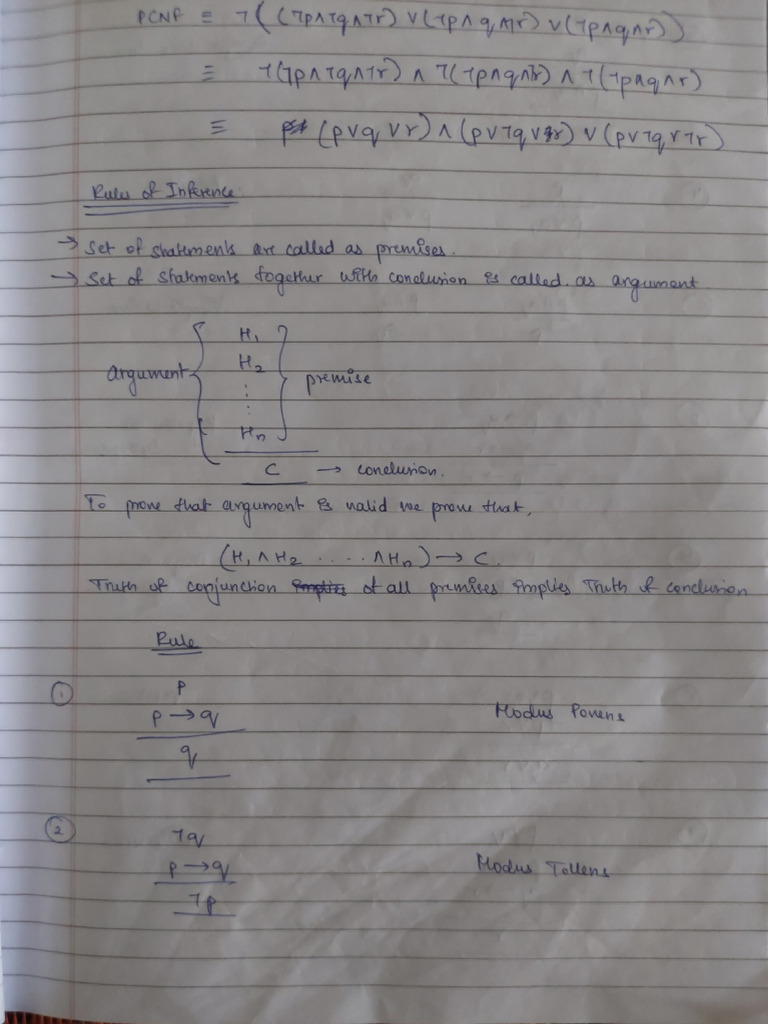 PCNF ≡ ¬((¬p∧¬q∧¬r) ∨ (¬p∧q∧¬r) ∨ (¬p∧q∧r))
≡ ¬(¬p∧¬q∧¬r) ∧ ¬(¬p∧q∧¬r) ∧ ¬(¬p∧q∧r)
≡ (p∨q∨r) ∧ (p∨¬q∨r) ∨ (p∨¬q∨¬r)
Rules of Inference
→ Set of statements are called as premises.
→ Set of statements together with conclusion is called as argument
H₁
H₂
argument premise
⋮
Hn
C → conclusion.
To prove that argument is valid we prove that,
(H₁ ∧ H₂ ..... ∧ Hn) → C.
Truth of conjunction implies of all premises implies Truth of conclusion
Rule
① p
p → q Modus Ponens
q
② ¬q
p → q Modus Tollens
¬p